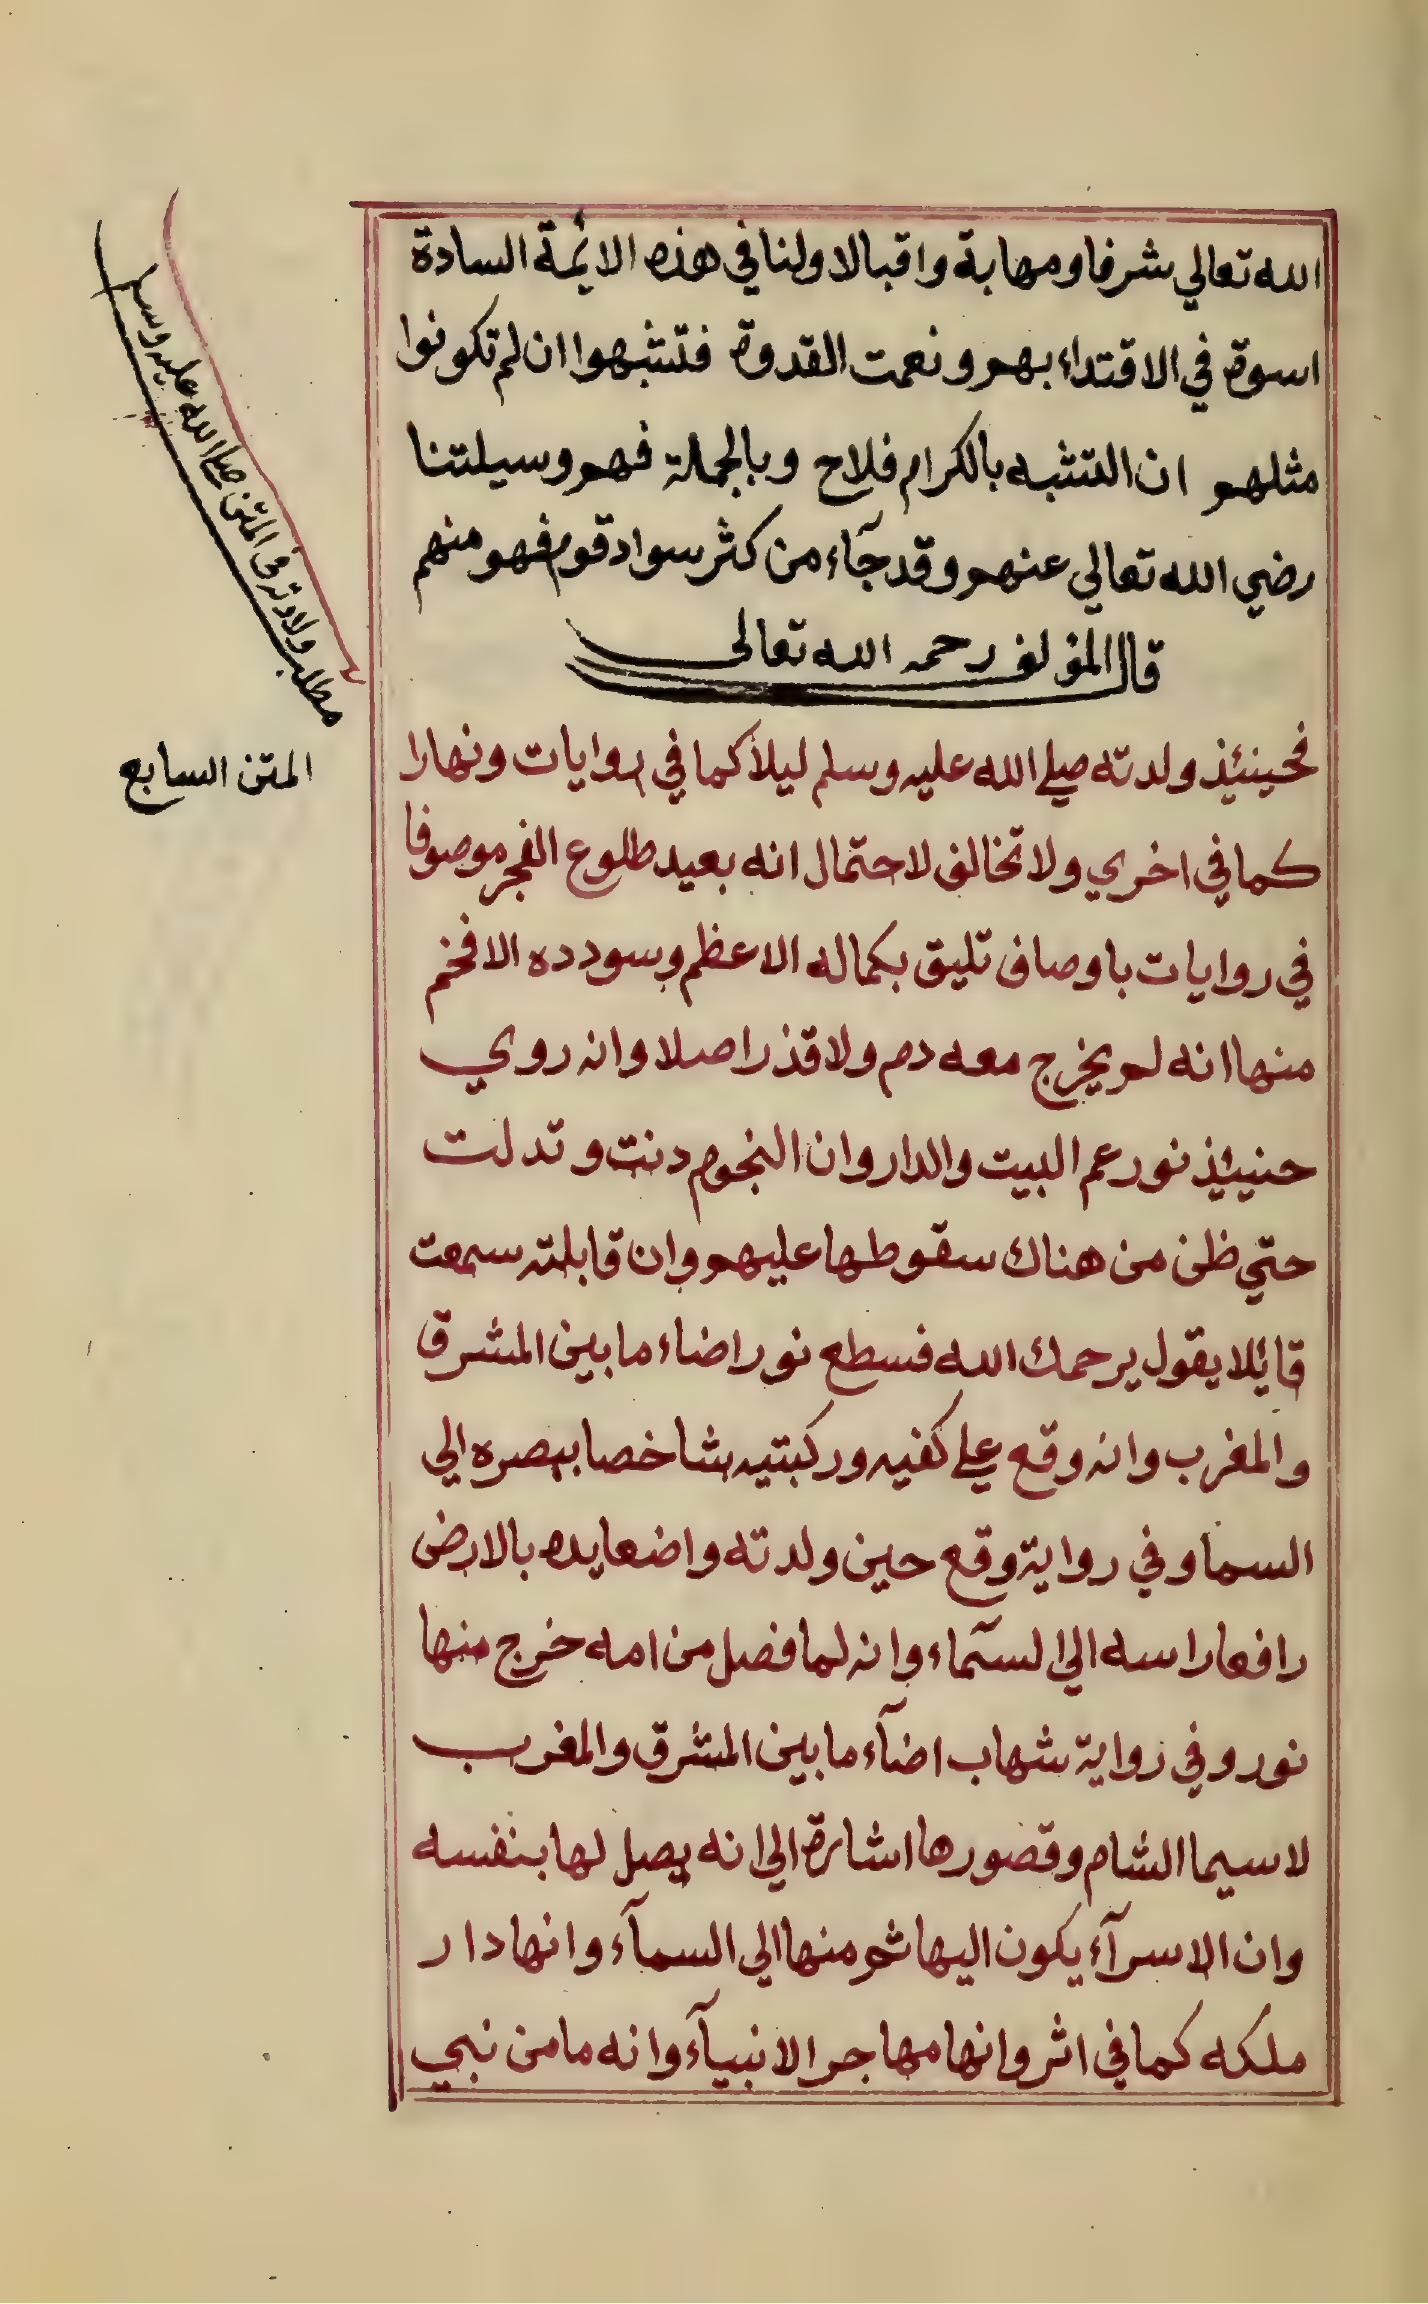 الله تعالي شرفا ومهابة واقبالا ولنا في هذه الائمة السادة
اسوة في الاقتداء بهم ونعمت القدوة فتشبهوا ان لم تكونوا
مثلهم ان التشبه بالكرام فلاح وبالجملة فهم وسيلتنا
رضي الله تعالي عنهم وقد جآء من كثر سواد قوم فهو منهم
قال المؤلف رحمه الله تعالى
فحينئذ ولدته صلي الله عليه وسلم ليلا كما في روايات ونهارا
كما في اخري ولا تخالف لاحتمال انه بعيد طلوع الفجر موصوفا
في روايات باوصاف تليق بكماله الاعظم وسودده الافخم
منها انه لم يخرج معه دم ولا قذر اصلا وانه روي
حنيئذ نور عم البيت والدار وان النجوم دنت وتدلت
حتي ظن من هناك سقوطها عليهم وان قابلته سمعت
قائلا يقول يرحمك الله فسطع نور اضاء ما بين المشرق
والمغرب وانه وقع علي كفيه وركبتيه شاخصا ببصره الي
السما وفي رواية وقع حين ولدته واضعا يده بالارض
رافعا راسه الي السمآء وانه لما فصل من امه خرج منها
نور وفي رواية شهاب اضآء ما بين المشرق والمغرب
لاسيما الشام وقصورها اشارة الي انه يصل لها بنفسه
وان الاسرآء يكون اليها ثم منها الي السمآء وانها دار
ملكه كما في اثر وانها مهاجر الانبيآء وانه ما من نبي
مطلب ولادته في المتن صلي الله عليه وسلم
المتن السابع